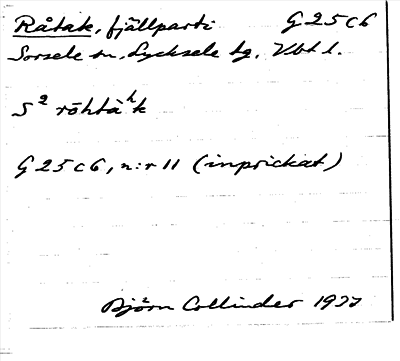 Råtak, fjällparti G 25 c 6
Sorsele sn, Lycksele lg, Vbt l.
S² rōhtàʰk
G 25 c 6, n:r 11 (inprickat)
Björn Collinder 1937